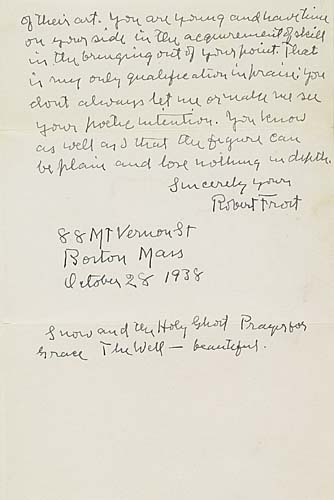 of their art. You are young and have time
on your side in the acquirement of skill
in the bringing out of your point. That
is my only qualification in praise: you
dont always let me or make me see
your poetic intention. You know
as well as I that the figure can
be plain and lose nothing in depth.
Sincerely yours
Robert Frost
88 Mt Vernon St
Boston Mass
October 28 1938
Snow and the Holy Ghost Prayer for
Grace The Well — beautiful.